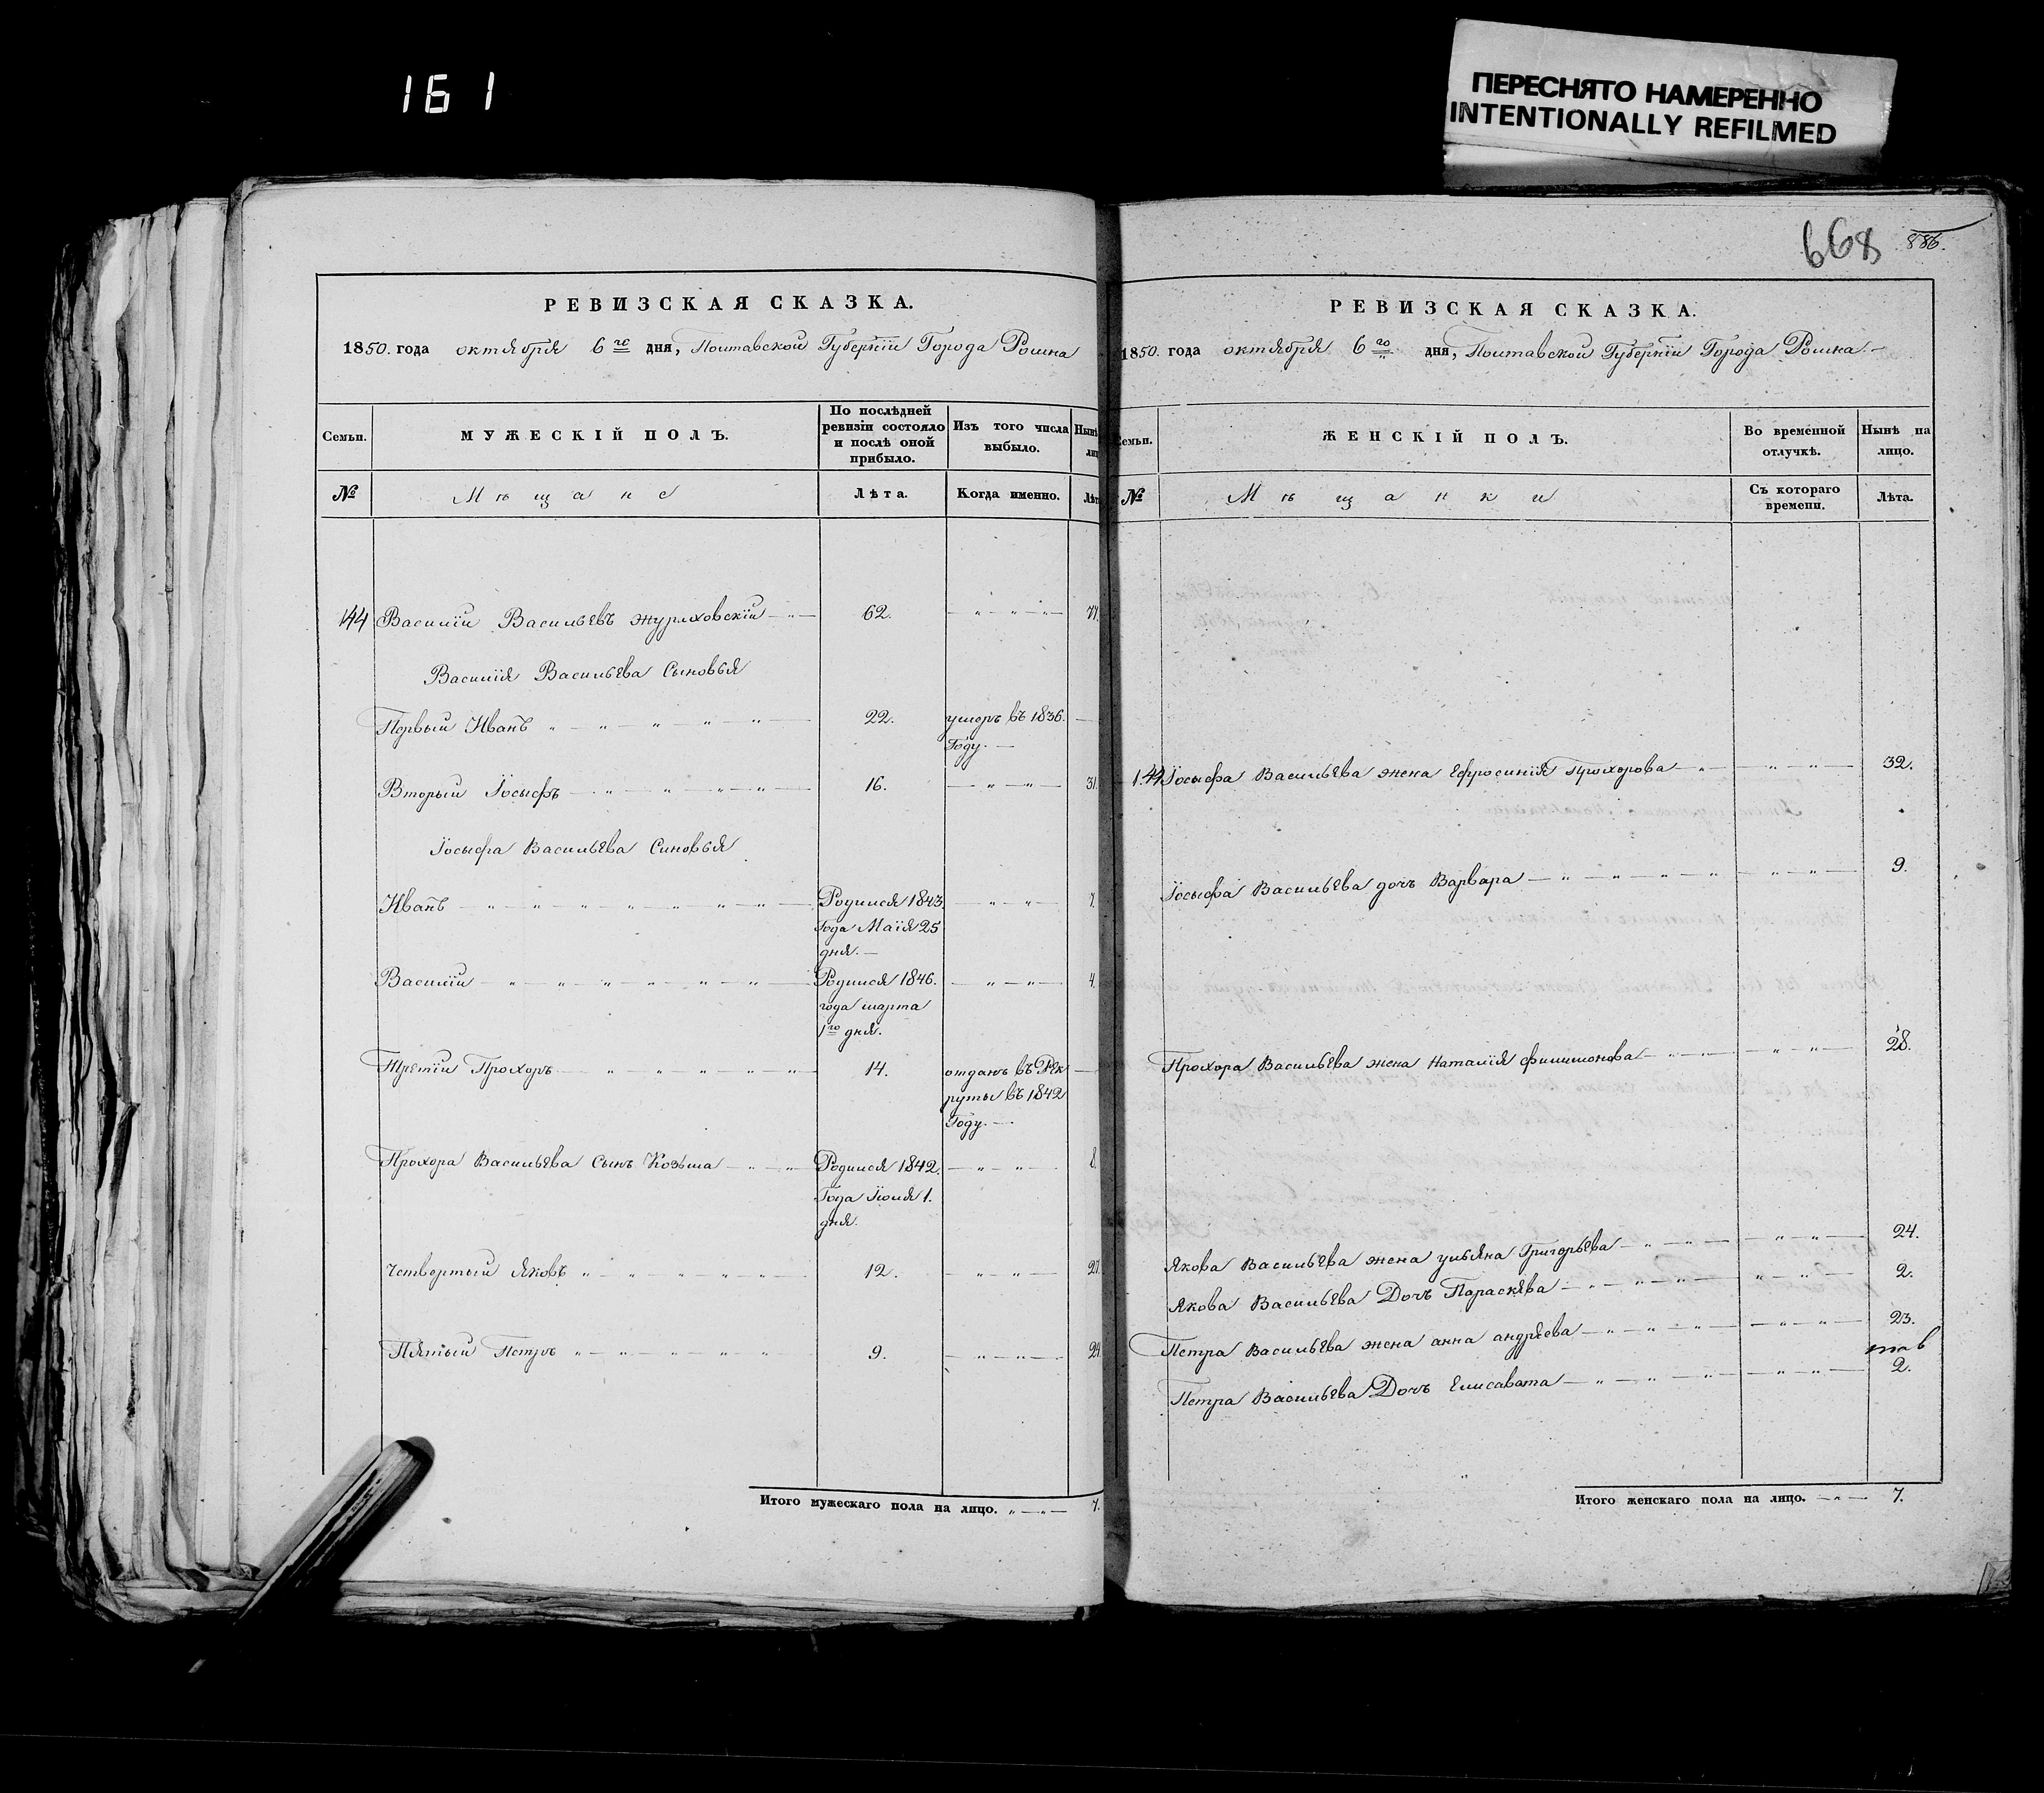 161
ПЕРЕСНЯТО НАМЕРЕННО
INTENTIONALLY REFILMED
РЕВИЗСКАЯ СКАЗКА.
1850. года октября 6го дня, Полтавской Губернїи Города Ромна
Семьи.
МУЖЕСКІЙ ПОЛЪ.
По послѣдней
ревизіи состояло
и послѣ оной
прибыло.
Изъ того числа
выбыло.
Нынѣ
лиц
№
Мѣщане
Лѣта.
Когда именно.
Лѣт
144 Василїй Васильевъ Журлховскїй 62. 77.
Василїя Васильева Сыновья
Первый Иванъ 22. умеръ въ 1836.
Году.
Вторый Їосыфъ 16. 31.
Їосыфа Васильева Синовья
Иванъ Родился 1843. 7.
Года Маїя 25
дня.
Василїй Родился 1846. 4.
года марта
1го дня.
Третїй Прохоръ 14. отданъ въ Рек
руты въ 1842
Году.
Прохора Васильева Сынъ Козьма Родился 1842. 8.
Года Їюля 1.
дня.
Четвертый Яковъ 12. 27.
Пятый Петръ 9. 24.
Итого мужескаго пола на лицо. 7.
668 886.
РЕВИЗСКАЯ СКАЗКА.
1850. года октября 6го дня, Полтавской Губернїи Города Ромна.
Семьи.
ЖЕНСКІЙ ПОЛЪ.
Во временной
отлучкѣ.
Нынѣ на
лицо.
№
Мѣщанки
Съ котораго
времени.
Лѣта.
144 Їосыфа Васильева жена Ефросинїя Прохорова 32.
Їосыфа Васильева дочь Варвара 9.
Прохора Васильева жена Наталїя филимонова 28.
Якова Васильева жена ульяна Григорьева 24.
Якова Васильева Дочь Параскева 2.
Петра Васильева жена анна андреева 23.
Петра Васильева Дочь Елисавета 2.
Итого женскаго пола на лицо. 7.